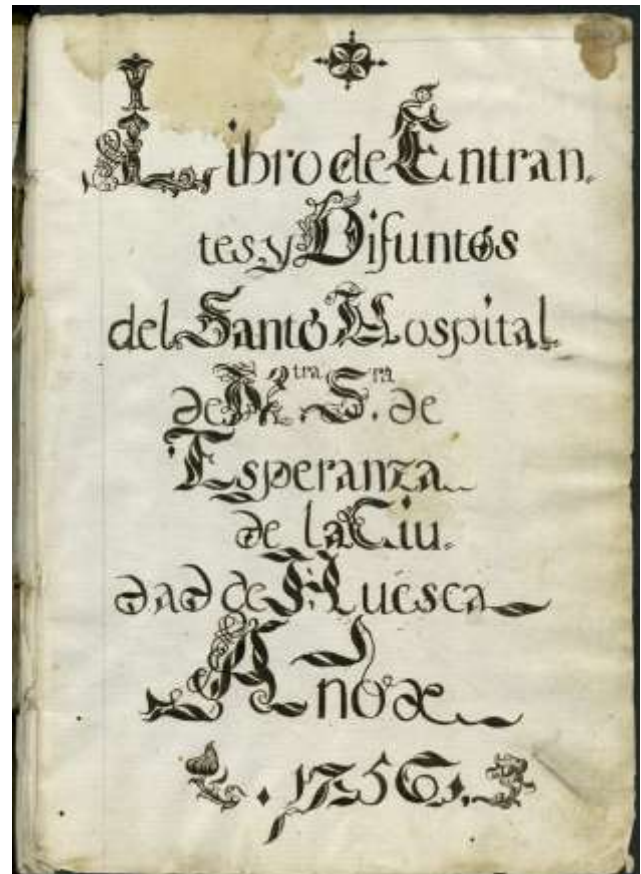 Libro de Entran.
tes y Difuntos
del Santo Hospital
de Ntra. Sra. de
Esperanza
de la Ciu.
dad de Huesca
Año de
.1756.